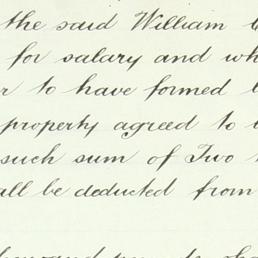 the said William
for salary and
to have formed
property agreed to
such sum of Two
be deducted from